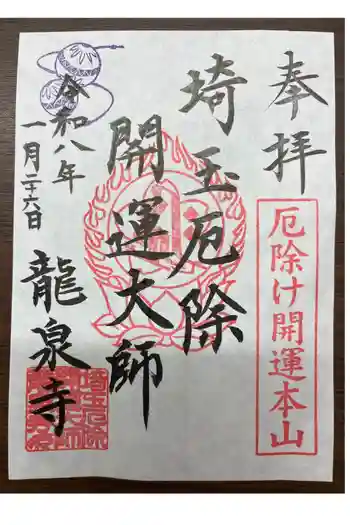 奉拝
厄除け開運本山
埼玉厄除
開運大師
令和八年
一月二十六日
龍泉寺